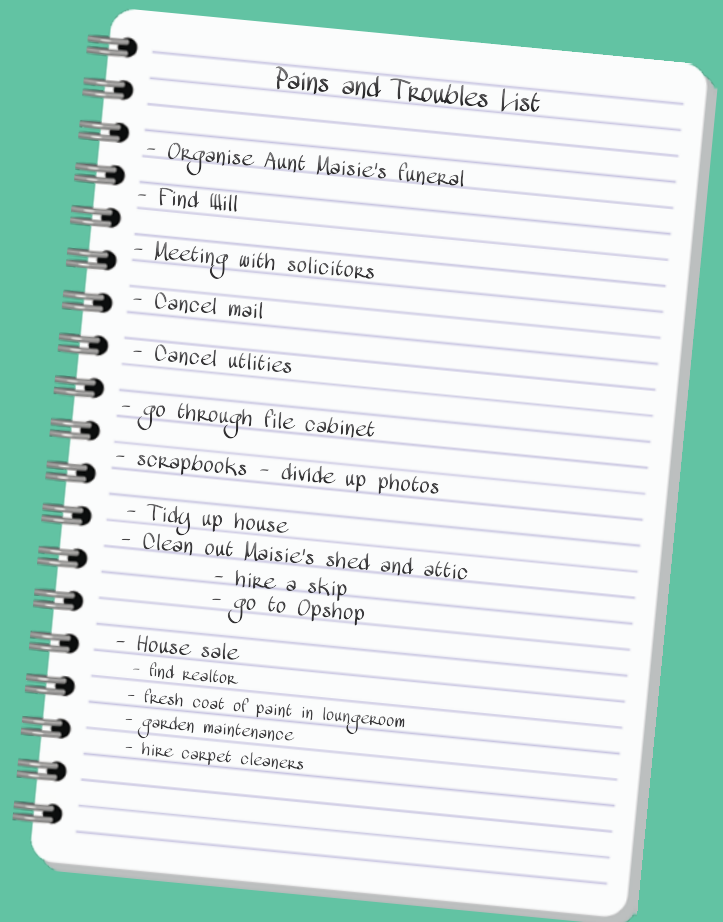 Pains and Troubles List
- Organise Aunt Maisie's funeral
- Find Will
- Meeting with solicitors
- Cancel mail
- Cancel utlities
- go through file cabinet
- scrapbooks - divide up photos
- Tidy up house
- Clean out Maisie's shed and attic
- hire a skip
- go to Opshop
- House sale
- find realtor
- fresh coat of paint in loungeroom
- garden maintenance
- hire carpet cleaners